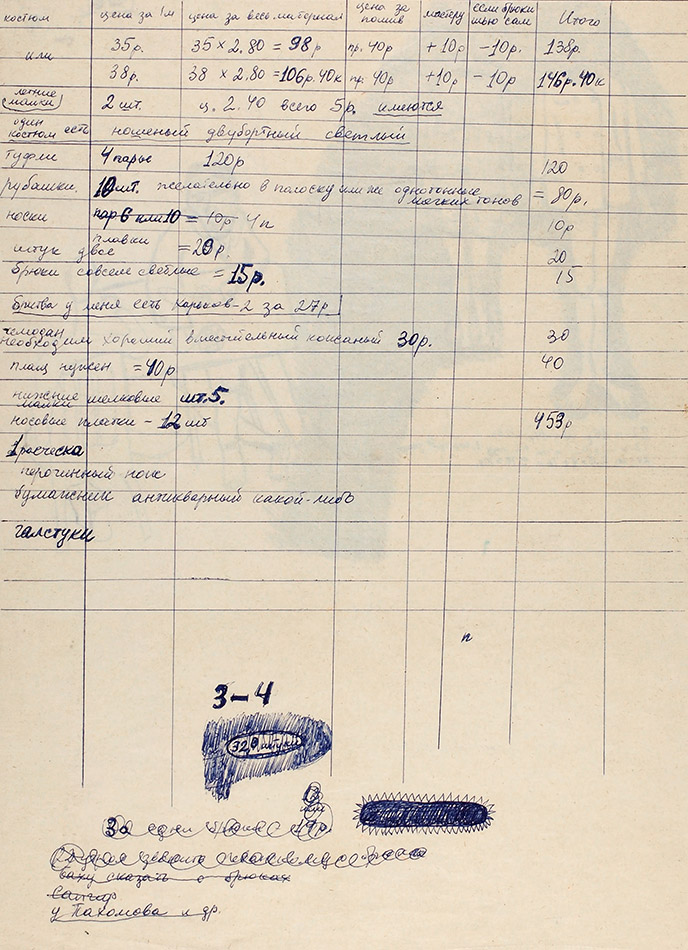 костюм цена за 1м цена за весь материал цена за пошив мастеру если брюки шью сам Итого
или 35р. 35 × 2.80 = 98р пр. 40р +10р -10р. 138р.
38р. 38 × 2.80 = 106р.40к пр. 40р +10р -10р 146р.40к
летние майки 2 шт. ц. 2.40 всего 5р. имеются
один костюм есть ношеный двубортный светлый
туфли 4 пары 120р 120
рубашки. 10шт. желательно в полоску или же однотонные мягких тонов = 80р.
носки пар 6 или 10 = 10р 4п 10р
штук двое плавки = 20р. 20
брюки совсем светлые = 15р. 15
бритва у меня есть Харьков-2 за 27р
чемодан необходим хороший вместительный кожаный 30р. 30
плащ нужен = 40р 40
нижние майки шелковые шт. 5.
носовые платки - 12 шт 453р
1 расческа
перочинный нож
бумажник антикварный какой-либо
галстуки
п
3-4
За одни брюки
19р
сказать о брюках
у Пахомова и др.